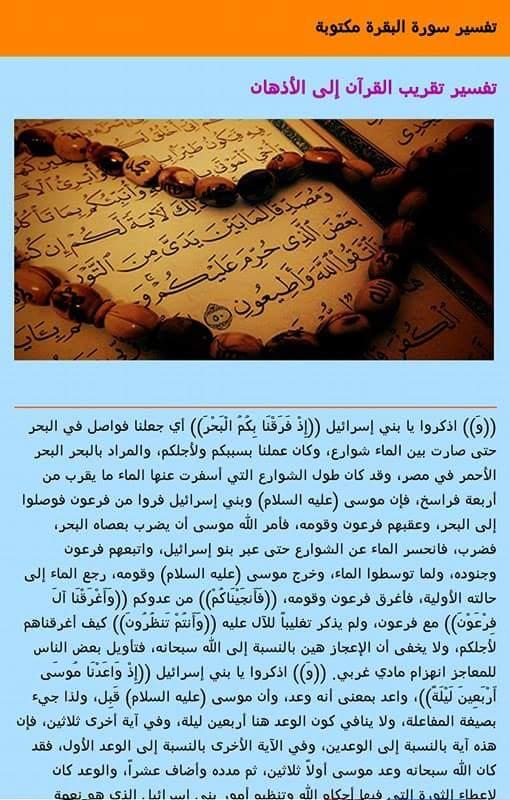 تفسير سورة البقرة مكتوبة
تفسير تقريب القرآن إلى الأذهان
وَمُصَدِّقًا لِّمَا بَيْنَ يَدَيَّ مِنَ التَّوْرَ
بَعْضَ الَّذِي حُرِّمَ عَلَيْكُمْ وَ
اتَّقُوا اللَّهَ وَأَطِيعُونِ ٥٠
((وَ)) اذكروا يا بني إسرائيل ((إِذْ فَرَقْنَا بِكُمُ الْبَحْرَ)) أي جعلنا فواصل في البحر
حتى صارت بين الماء شوارع، وكان عملنا بسببكم ولأجلكم، والمراد بالبحر البحر
الأحمر في مصر، وقد كان طول الشوارع التي أسفرت عنها الماء ما يقرب من
أربعة فراسخ، فإن موسى (عليه السلام) وبني إسرائيل فروا من فرعون فوصلوا
إلى البحر، وعقبهم فرعون وقومه، فأمر الله موسى أن يضرب بعصاه البحر،
فضرب، فانحسر الماء عن الشوارع حتى عبر بنو إسرائيل، واتبعهم فرعون
وجنوده، ولما توسطوا الماء، وخرج موسى (عليه السلام) وقومه، رجع الماء إلى
حالته الأولية، فأغرق فرعون وقومه، ((فَأَنجَيْنَاكُمْ)) من عدوكم ((وَأَغْرَقْنَا آلَ
فِرْعَوْنَ)) مع فرعون، ولم يذكر تغليباً للآل عليه ((وَأَنتُمْ تَنظُرُونَ)) كيف أغرقناهم
لأجلكم، ولا يخفى أن الإعجاز هين بالنسبة إلى الله سبحانه، فتأويل بعض الناس
للمعاجز انهزام مادي غربي. ((وَ)) اذكروا يا بني إسرائيل ((إِذْ وَاعَدْنَا مُوسَى
أَرْبَعِينَ لَيْلَةً))، واعد بمعنى أنه وعد، وأن موسى (عليه السلام) قَبِل، ولذا جيء
بصيغة المفاعلة، ولا ينافي كون الوعد هنا أربعين ليلة، وفي آية أخرى ثلاثين، فإن
هذه آية بالنسبة إلى الوعدين، وفي الآية الأخرى بالنسبة إلى الوعد الأول، فقد
كان الله سبحانه وعد موسى أولاً ثلاثين، ثم مدده وأضاف عشراً، والوعد كان
لإعطاء التوراة التي فيها أحكام الله وتنظيم أمور بني إسرائيل الذي هو نعمة